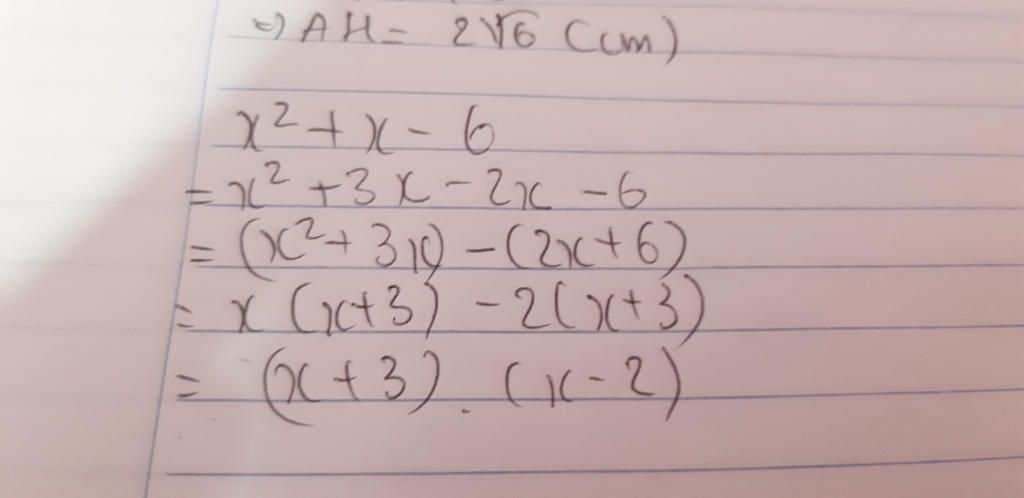 =) AH = 2√6 (cm)
x² + x - 6
= x² + 3x - 2x - 6
= (x² + 3x) - (2x + 6)
= x (x+3) - 2(x+3)
= (x+3) . (x-2)